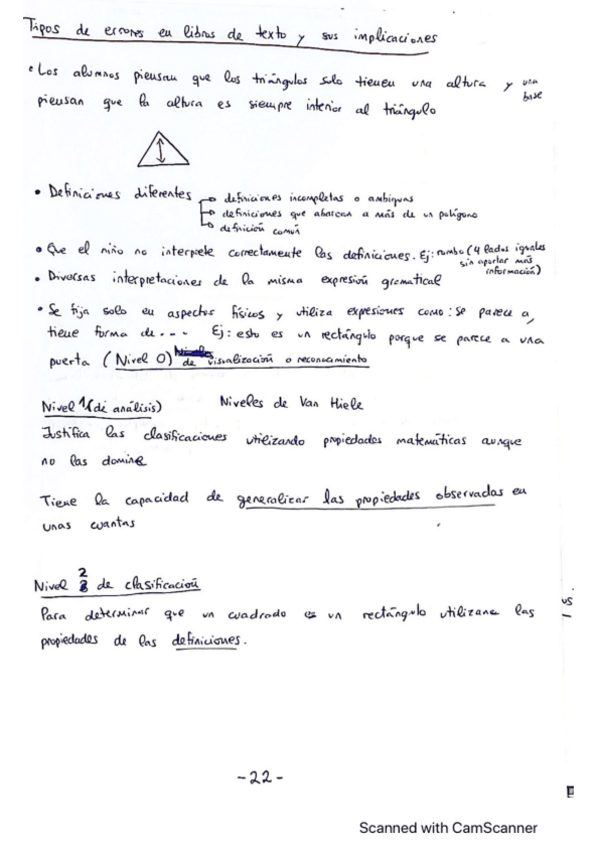 Tipos de errores en libros de texto y sus implicaciones
• Los alumnos piensan que los triángulos solo tienen una altura y una base
piensan que la altura es siempre interior al triángulo
• Definiciones diferentes → definiciones incompletas o ambiguas
→ definiciones que abarcan a más de un polígono
→ definición común
• Que el niño no interprete correctamente las definiciones. Ej: rombo (4 lados iguales
sin aportar más
información)
• Diversas interpretaciones de la misma expresión gramatical
• Se fija solo en aspectos físicos y utiliza expresiones como: Se parece a,
tiene forma de... Ej: esto es un rectángulo porque se parece a una
puerta (Nivel 0) de visualización o reconocimiento
Nivel 1 (de análisis) Niveles de Van Hiele
Justifica las clasificaciones utilizando propiedades matemáticas aunque
no las domine
Tiene la capacidad de generalizar las propiedades observadas en
unas cuantas
Nivel 2 de clasificación
Para determinar que un cuadrado es un rectángulo utilizane las
propiedades de las definiciones.
-22-
Scanned with CamScanner